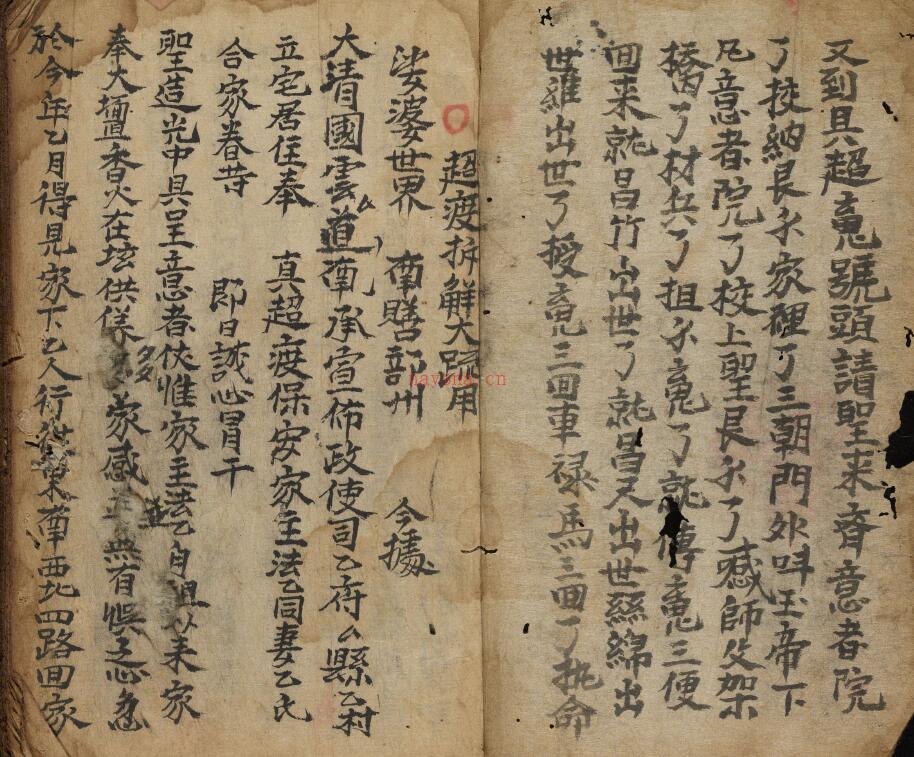 又到具超魂號頭請聖来齊意者院
了投納良永家裡了三朝門外叫玉帝下
凡意者院了投上聖良永了感師父架
橋了材兵了担永魂了就傳魂三便
回来就昌竹出世了就昌天出世絲綿出
世羅出世了授魂三回車禄馬三回了执命
超度拆解大疏用
娑婆世界 南贍部州 今據
大清國雲道南承宣佈政使司乙府么縣乙村
立宅居住奉 真超度保安家主法乙同妻乙氏
合家眷等 即日誠心冒干
聖造光中具呈意者伏惟家主法乙自祖以来家
奉大壇香火在坛供养多蒙感並無有悮之心急
於今年乙月得見家下乙人行往東南西北四路回家
bayuna.cn